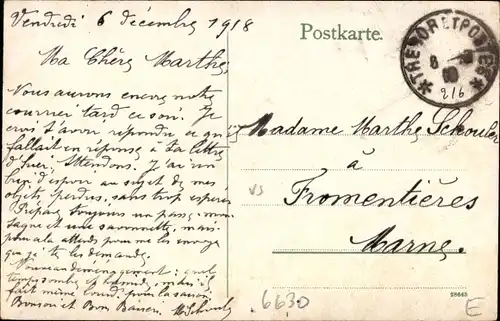 Vendredi 6 décembre 1918
Ma Chère Marthe,
Nous aurons encore notre
courrier tard ce soir. Je
crois t'avoir répondu ce qu'il
fallait en réponse à ta lettre
d'hier. Attendons. J'ai un
bien d'espoir au sujet de mes
objets perdus, sans trop espérer
Prépare toujours un passe-mon
tagne et une savonnette, mais
pour cela attends pour me les envoyer
que je te les demande.
Nouveau déménagement:
temps sombre et humide, mais il
fait même lourd pour la saison.
Bonsoir et Bon Baiser.
Postkarte.
*TRESOR ET POSTES*
8
216
Madame Marthe Schouler
à
Fromentières
Marne.
VS
28643
6630
E